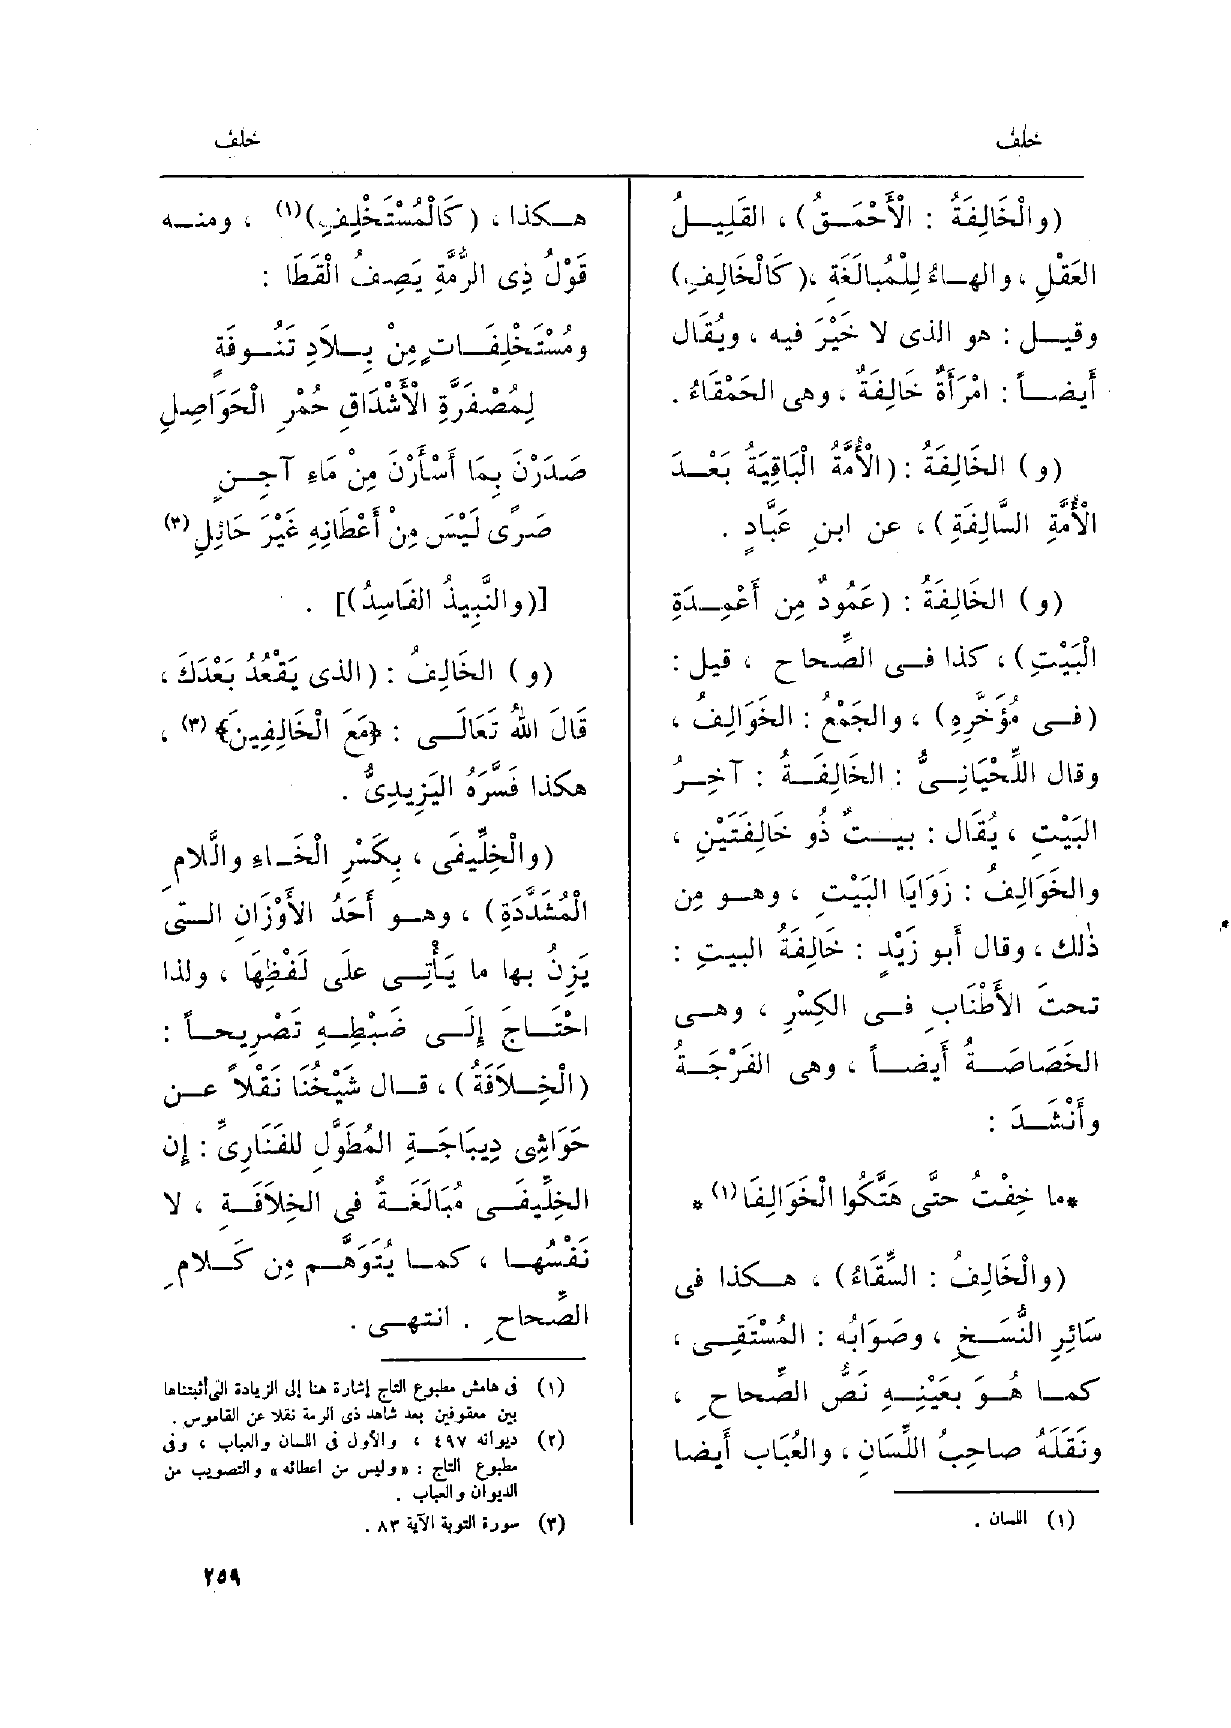 خلف
خلف
(والْخَالِفَةُ : الْأَحْمَقُ) ، القَلِيلُ
العَقْلِ ، والهاءُ لِلْمُبالَغَةِ ،(كَالْخَالِفِ)
وقيل : هو الذى لا خَيْرَ فيه ، ويُقَال
أَيضاً : امْرَأَةٌ خَالِفَةٌ ، وهى الحَمْقَاءُ .
(و) الخَالِفَةُ : (الْأُمَّةُ الْبَاقِيَةُ بَعْدَ
الْأُمَّةِ السَّالِفَةِ) ، عن ابنِ عَبَّادٍ .
(و) الخَالِفَةُ : (عَمُودٌ مِن أَعْمِدَةِ
الْبَيْتِ) ، كذا فى الصِّحاحِ ، قيل :
(فى مُؤَخَّرِهِ) ، والجَمْعُ : الخَوَالِفُ ،
وقال اللِّحْيَانِىُّ : الخَالِفَةُ : آخِرُ
البَيْتِ ، يُقَال : بيتٌ ذُو خَالِفَتَيْنِ ،
والخَوَالِفُ : زَوَايَا البَيْتِ ، وهو مِن
ذٰلك ، وقال أَبو زَيْدٍ : خَالِفَةُ البيتِ :
تحتَ الأَطْنَابِ فى الكِسْرِ ، وهى
الخَصَاصَةُ أَيضاً ، وهى الفَرْجَةُ
وأَنْشَدَ :
*ما خِفْتُ حتَّى هَتَّكُوا الْخَوَالِفَا (١) *
(والْخَالِفُ : السَّقَّاءُ) ، هكذا فى
سَائِرِ النُّسَخِ ، وصَوَابُه : المُسْتَقِى ،
كما هُوَ بعَيْنِهِ نَصُّ الصِّحاحِ ،
ونَقَلَهُ صاحِبُ اللِّسَانِ ، والعُبَاب أَيضا
(١) اللسان .
هكذا ، (كَالْمُسْتَخْلِفِ)(١) ، ومنه
قَوْلُ ذِى الرُّمَّةِ يَصِفُ الْقَطَا :
ومُسْتَخْلِفَاتٍ مِنْ بِلَادِ تَنُوفَةٍ
لِمُصْفَرَّةِ الْأَشْدَاقِ حُمْرِ الْحَوَاصِلِ
صَدَرْنَ بِمَا أَسْأَرْنَ مِنْ مَاءِ آجِنٍ
صَرًى لَيْسَ مِنْ أَعْطَانِهِ غَيْرَ حَائِلِ (٢)
[(والنَّبِيذُ الفَاسِدُ)] .
(و) الخَالِفُ : (الذى يَقْعُدُ بَعْدَكَ ،
قَالَ اللهُ تَعَالَى : ﴿مَعَ الْخَالِفِينَ﴾ (٣) ،
هكذا فَسَّرَهُ اليَزِيدِىُّ .
(والْخِلِّيفَى ، بِكَسْرِ الْخَاءِ والَّلامِ
الْمُشَدَّدَةِ) ، وهو أَحَدُ الأَوْزَانِ التى
يَزِنُ بها ما يَأْتِى علَى لَفْظِهَا ، ولذا
احْتَاجَ إِلَى ضَبْطِهِ تَصْرِيحاً :
(الْخِلَافَةُ) ، قال شَيْخُنَا نَقْلاً عن
حَوَاشِى دِيبَاجَةِ المُطَوَّلِ للفَنَارِىِّ : إِن
الخِلِّيفَى مُبَالَغَةٌ فى الخِلاَفَةِ ، لا
نَفْسُها ، كما يُتَوَهَّم مِن كَلامِ
الصِّحاحِ . انتهى .
(١) فى هامش مطبوع التاج إشارة هنا إلى الزيادة التى أثبتناها
بين معقوفين بعد شاهد ذى الرمة نقلا عن القاموس .
(٢) ديوانه ٤٩٧ ، والأول فى اللسان والعباب ، وفى
مطبوع التاج : «وليس من اعطائه» والتصويب من
الديوان والعباب .
(٣) سورة التوبة الآية ٨٣ .
٢٥٩